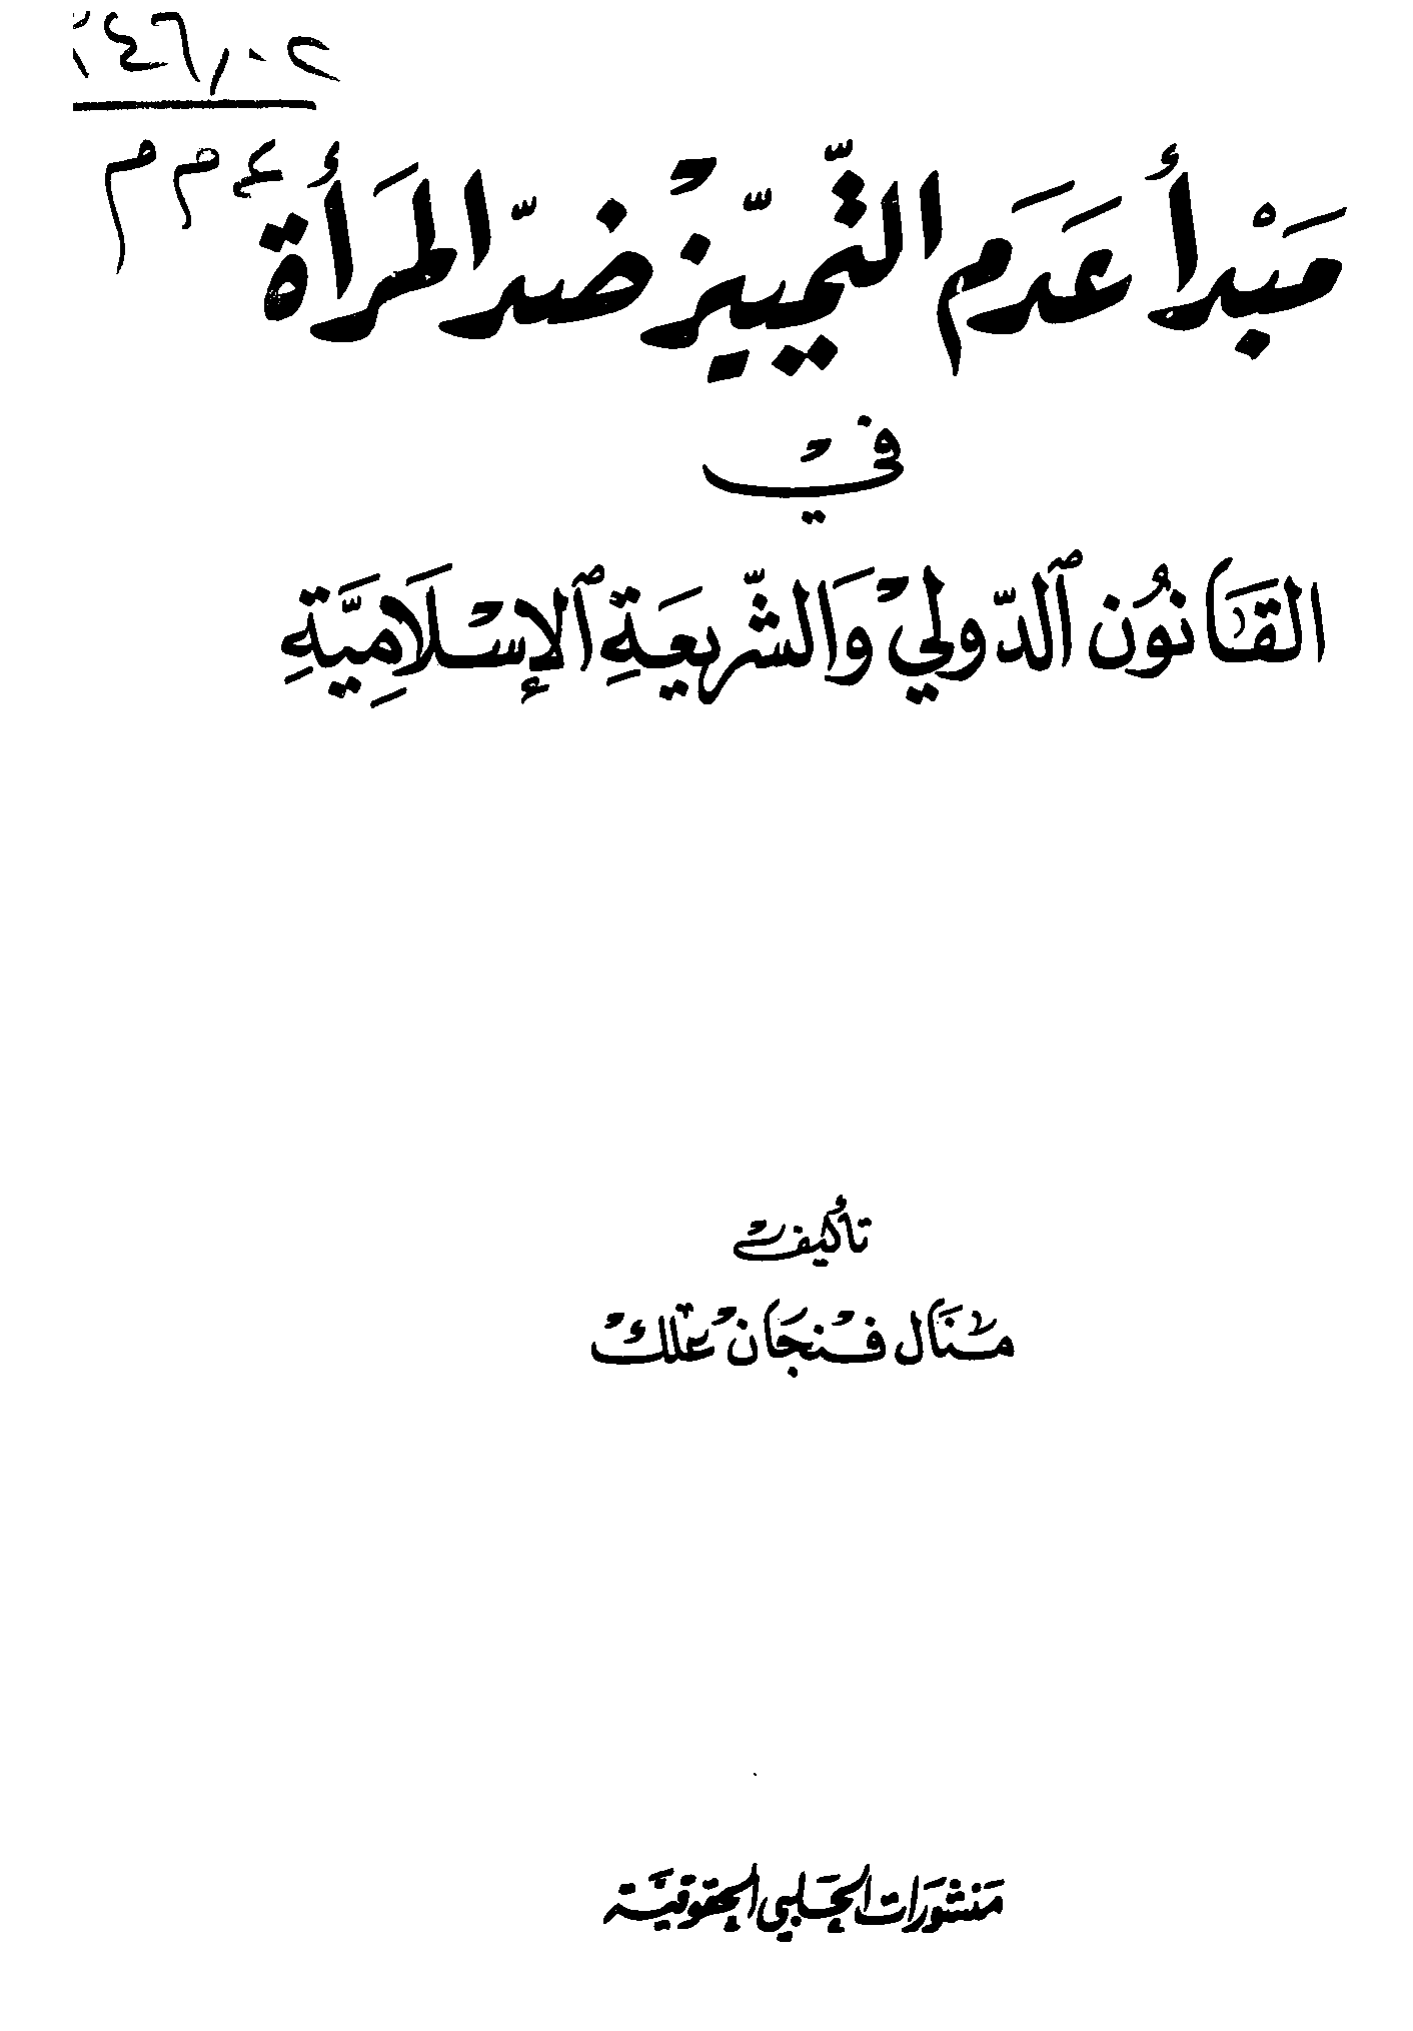 مَبْدأ عَدَم التّمييّز ضدّ المَرأة
في
القَانوُن ٱلدّولي وَالشّريعَةِ ٱلإسْلَامِيَّةِ
تأليف
منَال فنجَان علك
مَنشورَات الحَلبي الحقوقيَّة